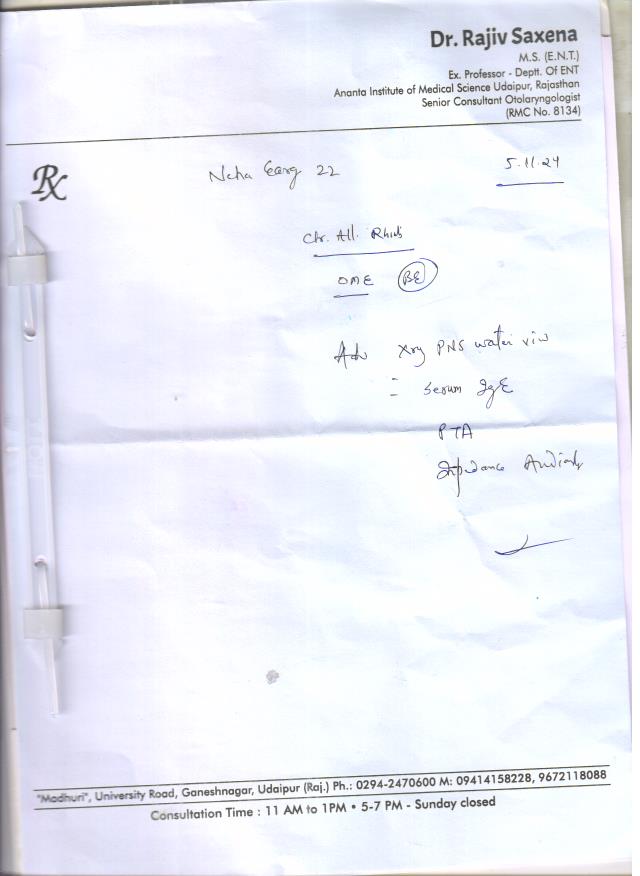 Dr. Rajiv Saxena
M.S. (E.N.T.)
Ex. Professor - Deptt. Of ENT
Ananta Institute of Medical Science Udaipur, Rajasthan
Senior Consultant Otolaryngologist
(RMC No. 8134)
Rx
Neha Garg 22
5.11.24
Chr. All. Rhinitis
OME BE
Adv Xray PNS water view
Serum IgE
PTA
Impedance Audiometry
"Madhuri", University Road, Ganeshnagar, Udaipur (Raj.) Ph.: 0294-2470600 M: 09414158228, 9672118088
Consultation Time : 11 AM to 1PM • 5-7 PM - Sunday closed